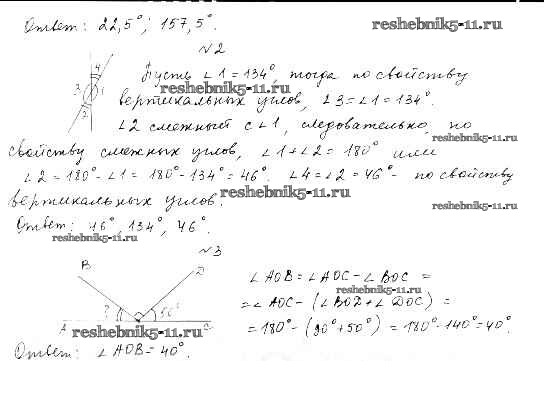 Ответ: 22,5°; 157,5°.
reshebnik5-11.ru
№2
Пусть ∠1=134°, тогда по свойству
reshebnik5-11.ru
вертикальных углов, ∠3=∠1=134°.
∠2 смежный с ∠1, следовательно, по
reshebnik5-11.ru
свойству смежных углов, ∠1+∠2=180° или
∠2=180°-∠1=180°-134°=46°. ∠4=∠2=46°- по свойству
reshebnik5-11.ru
вертикальных углов.
reshebnik5-11.ru
Ответ: 46°, 134°, 46°.
reshebnik5-11.ru
№3
4
3 1
2
B D
? 50°
A O C
∠AOB=∠AOC-∠BOC=
reshebnik5-11.ru
=∠AOC-(∠BOD+∠DOC)=
=180°-(90°+50°)=180°-140°=40°.
reshebnik5-11.ru
Ответ: ∠AOB=40°.